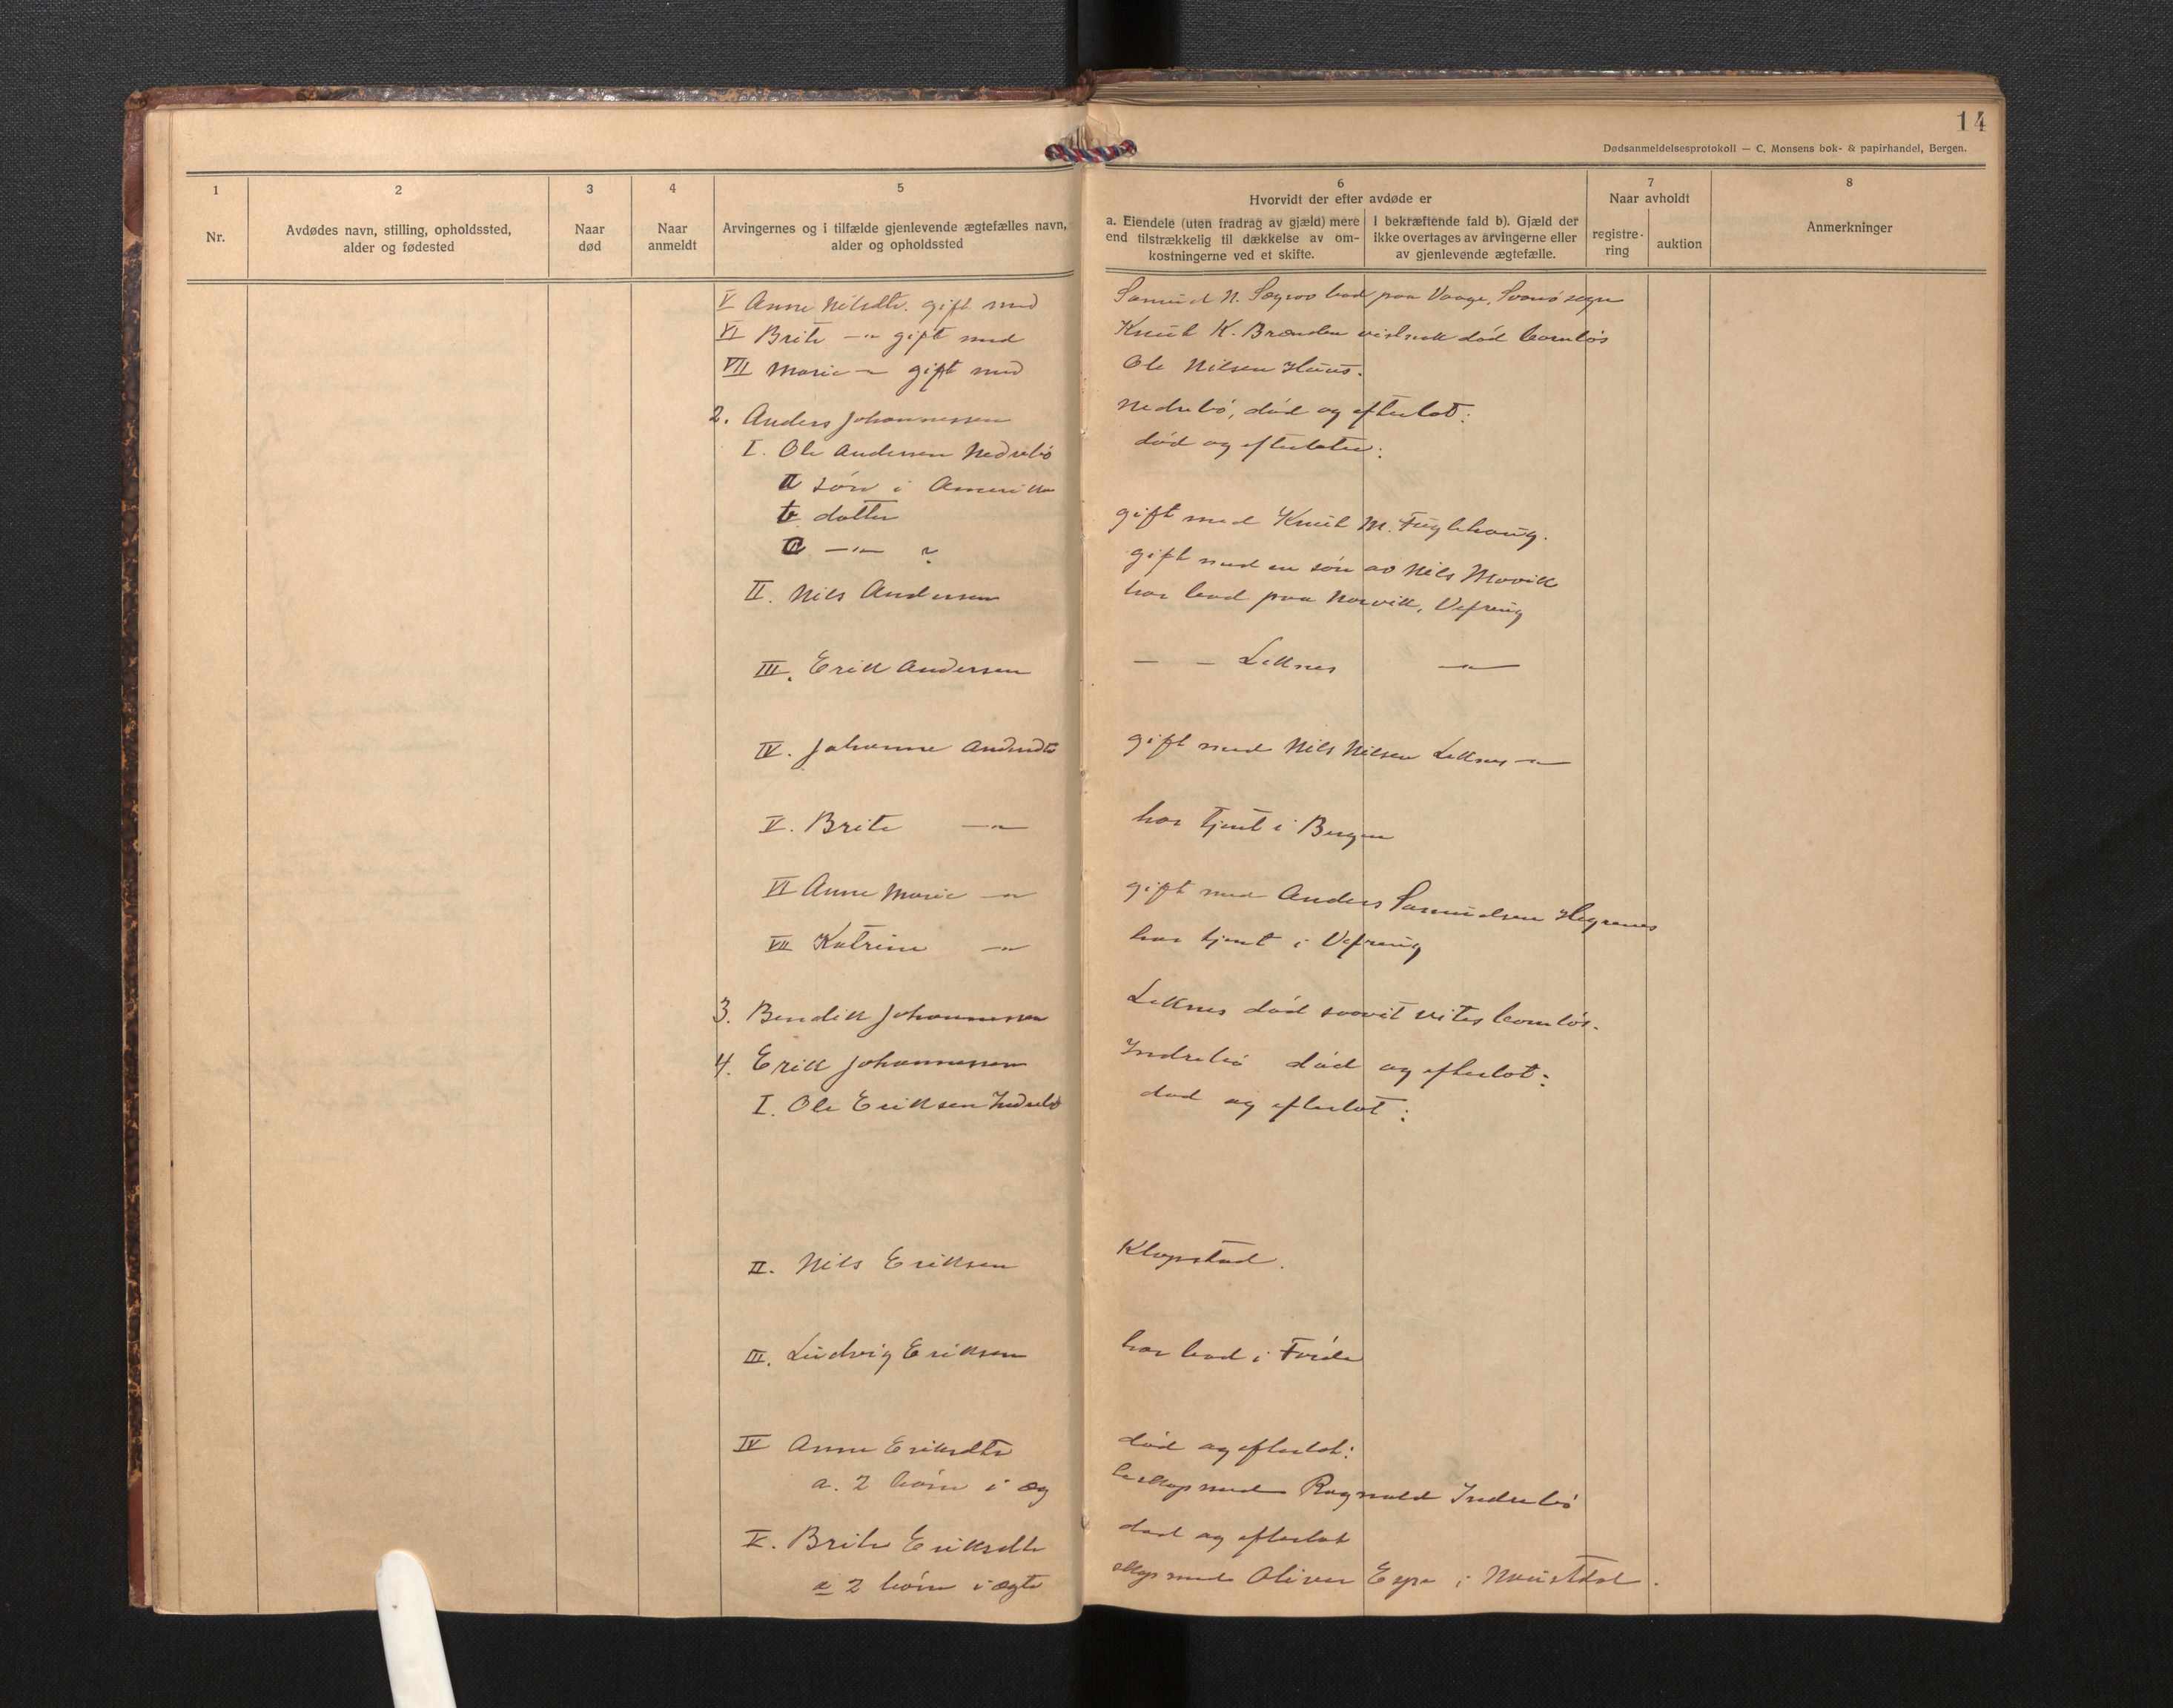 14
Dødsanmeldelsesprotokoll — C. Monsens bok- & papirhandel, Bergen.
1 2 3 4 5 6 7 8
Nr.
Avdødes navn, stilling, opholdssted,
alder og fødested
Naar
død
Naar
anmeldt
Arvingernes og i tilfælde gjenlevende ægtefælles navn,
alder og opholdssted
Hvorvidt der efter avdøde er
a. Eiendele (uten fradrag av gjæld) mere
end tilstrækkelig til dækkelse av om-
kostningerne ved et skifte.
I bekræftende fald b). Gjæld der
ikke overtages av arvingerne eller
av gjenlevende ægtefælle.
Naar avholdt
registre-
ring
auktion
Anmerkninger
V Anne Nilsdtr. gift med Samuel N. Sægrov bod paa Vaage, Svanø sogn
VI Brite —"— gift med Knut K. Brænden vistnok død barnløs
VII Marie —"— gift med Ole Nilsen Huus.
2. Anders Johannessen Nedrebø, død og efterlot:
I. Ole Andersen Nedrebø død og efterlater:
a søn i Amerika
b datter gift med Knut M. Fuglehaug.
c —"— ? gift med en søn av Nils Movik
II. Nils Andersen har bod paa Norvik, Vefring
III. Erik Andersen — — Leknes —"—
IV. Johanne Andersdtr gift med Nils Nilsen Leknes —"—
V. Brite —"— har tjent i Bergen
VI Anne Marie —"— gift med Anders Samuelsen Hegrenes
VII Katrine —"— har tjent i Vefring
3. Bendik Johannessen Leknes død saavit vites barnløs.
4. Erik Johannessen Indrebø død og efterlot:
I. Ole Eriksen Indrebø død og efterlot:
II. Nils Eriksen Klopstad.
III. Ludvig Eriksen har bod i Førde
IV Anne Eriksdtr død og efterlot:
a. 2 børn i æg teskap med Ragnvald Indrebø
V. Brite Eriksdtr død og efterlot
a 2 børn i ægte skap med Oliver Espe i Naustdal.